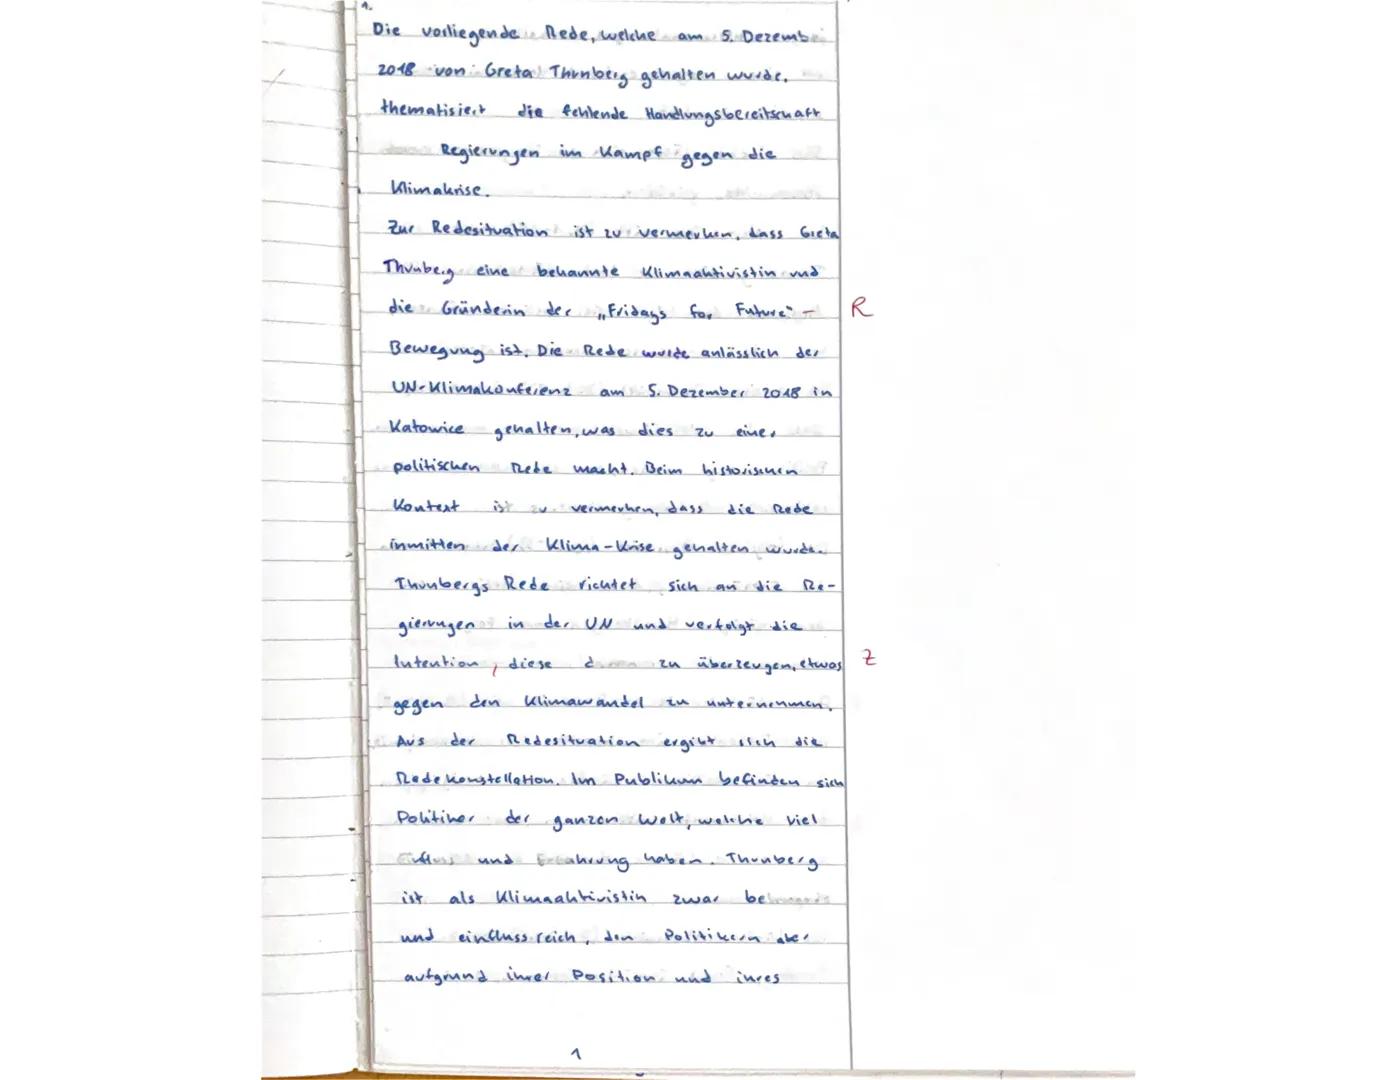 1.
Die vorliegende Rede, welche am 5. Dezemb
2018 von Greta Thunberg gehalten wurde,
thematisiert die fehlende Handlungsbereitschaft
Regierungen im Kampf gegen die
Klimakrise.
Zur Redesituation ist zu vermerken, dass Greta
Thunberg eine bekannte Klimaaktivistin und
die Gründerin der „Fridays for Future" - R
Bewegung ist. Die Rede wurde anlässlich der
UN-Klimakonferenz am 5. Dezember 2018 in
Katowice gehalten, was dies zu einer
politischen Rede macht. Beim historischen
Kontext ist zu vermerken, dass die Rede
inmitten der Klima-Krise gehalten wurde.
Thunbergs Rede richtet sich an die Re-
gierungen in der UN und verfolgt die
Intention, diese zu überzeugen, etwas Z
gegen den Klimawandel zu unternehmen.
Aus der Redesituation ergibt sich die
Redekonstellation. Im Publikum befinden sich
Politiker der ganzen Welt, welche viel
Einfluss und Erfahrung haben. Thunberg
ist als Klimaaktivistin zwar
und einflussreich, den Politikern aber
aufgrund ihrer Position und ihres
1